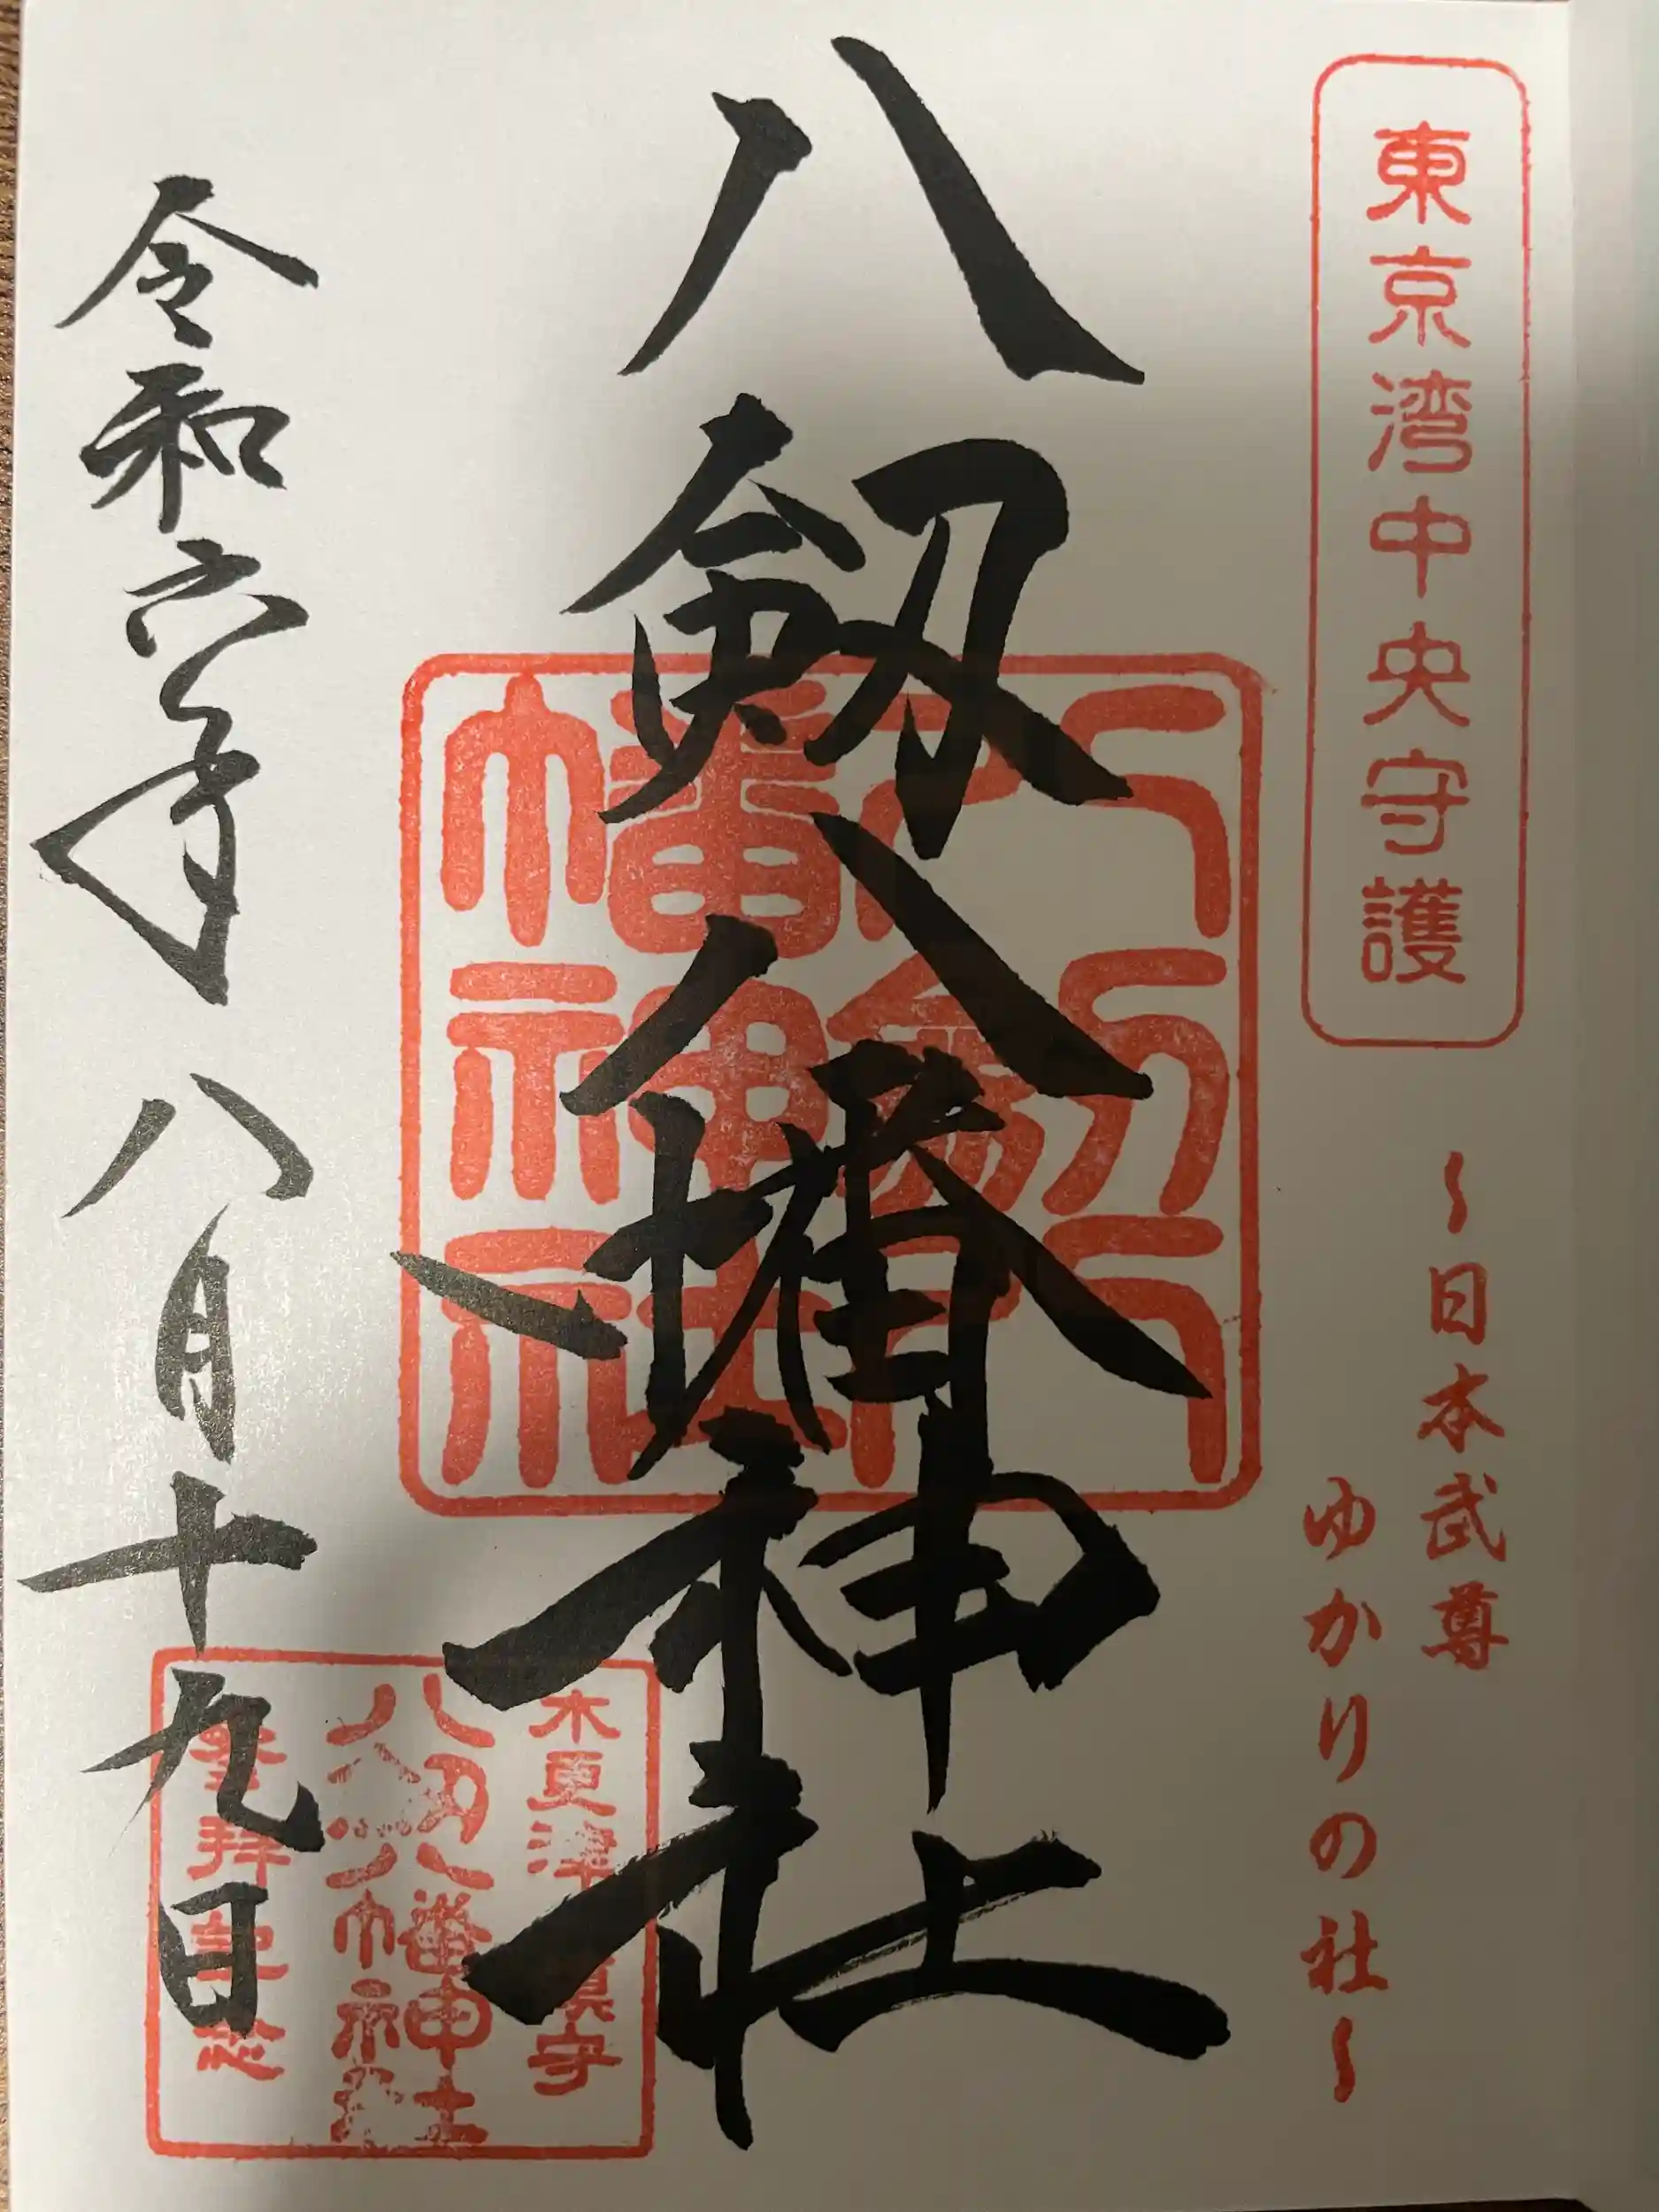 東京湾中央守護
〜日本武尊
ゆかりの社〜
八剱八幡神社
八剱八幡神社
木更津総鎮守
八剱八幡神社
参拝記念
令和六年八月十九日